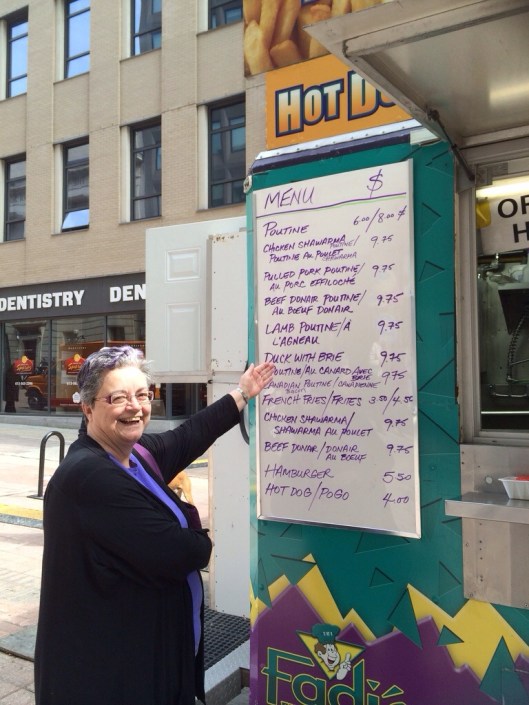 HOT DO
MENU $
POUTINE 6.00/8.00
CHICKEN SHAWARMA POUTINE/ 9.75
POUTINE AU POULET SHAWARMA
PULLED PORK POUTINE/ 9.75
AU PORC EFFILOCHÉ
BEEF DONAIR POUTINE/ 9.75
AU BOEUF DONAIR
LAMB POUTINE/À 9.75
L'AGNEAU
DUCK WITH BRIE 9.75
POUTINE/AU CANARD AVEC BRIE 9.75
CANADIAN POUTINE/CANADIENNE
BACON
FRENCH FRIES/FRITES 3.50/4.50
CHICKEN SHAWARMA/ 9.75
SHAWARMA AU POULET
BEEF DONAIR/DONAIR 9.75
AU BOEUF
HAMBURGER 5.50
HOT DOG/POGO 4.00
OP
H
DENTISTRY DEN
Fadi's